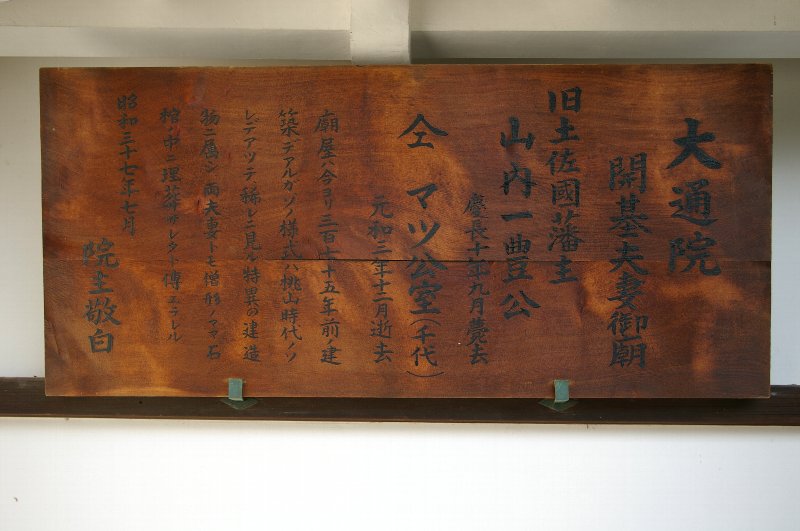 大通院
開基夫妻御廟
旧土佐國藩主
山内一豊公
慶長十年九月薨去
仝 マツ公室(千代)
元和三年十二月逝去
廟屋ハ今ヨリ三百五十五年前ノ建
築デアルガソノ様式ハ桃山時代ノソ
レデアツテ稀レニ見ル特異の建造
物ニ属シ両夫妻トモ僧形ノママ石
棺ノ中ニ埋葬サレタト傳エラレル
昭和三十七年七月
院主敬白